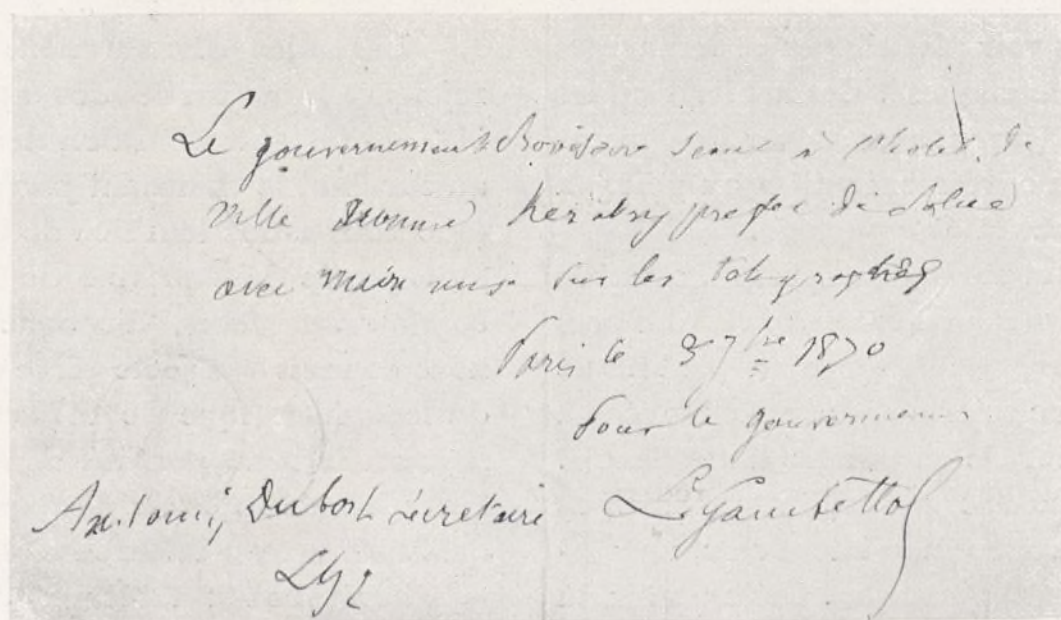 Le gouvernement Provisoire à l'hotel de
Ville nomme Keratry prefet de Police
avec main mise sur les telegraphes
Paris le 7bre 1870
Pour le gouvernement
Antonin Dubost secretaire
L Gambetta